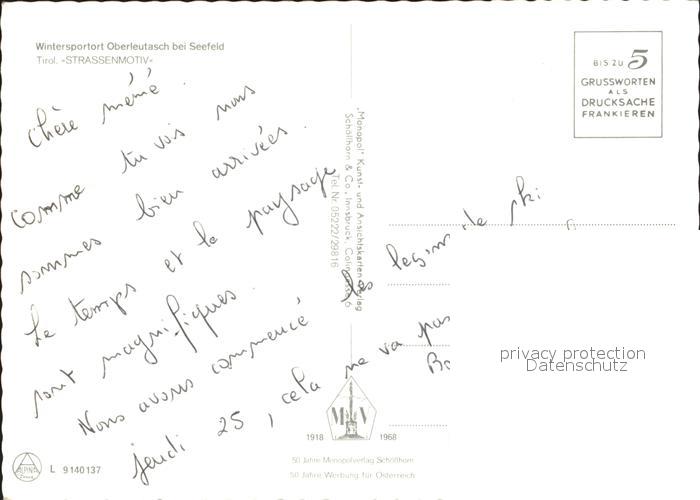 Wintersportort Oberleutasch bei Seefeld
Tirol. «STRASSENMOTIV»
Chère mémé.
comme tu vois nous
sommes bien arrivées.
Le temps et le paysage
sont magnifiques.
Nous avons commencé les leçons de ski
jeudi 25, cela ne va pas
BIS ZU 5
GRUSSWORTEN
ALS
DRUCKSACHE
FRANKIEREN
„Monopol" Kunst- und Ansichtskarten Verlag
Schöllhorn & Co., Innsbruck,
Tel. Nr. 05222/29816
M V
1918 1968
50 Jahre Monopolverlag Schöllhorn
50 Jahre Werbung für Österreich
ALPINA
L 9140137
privacy protection
Datenschutz